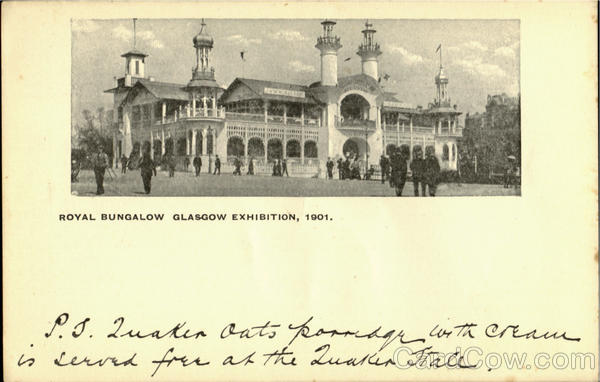 ROYAL BUNGALOW GLASGOW EXHIBITION, 1901.
P.S. Quaker Oats porridge with cream
is served free at the Quaker Stall.
CardCow.com